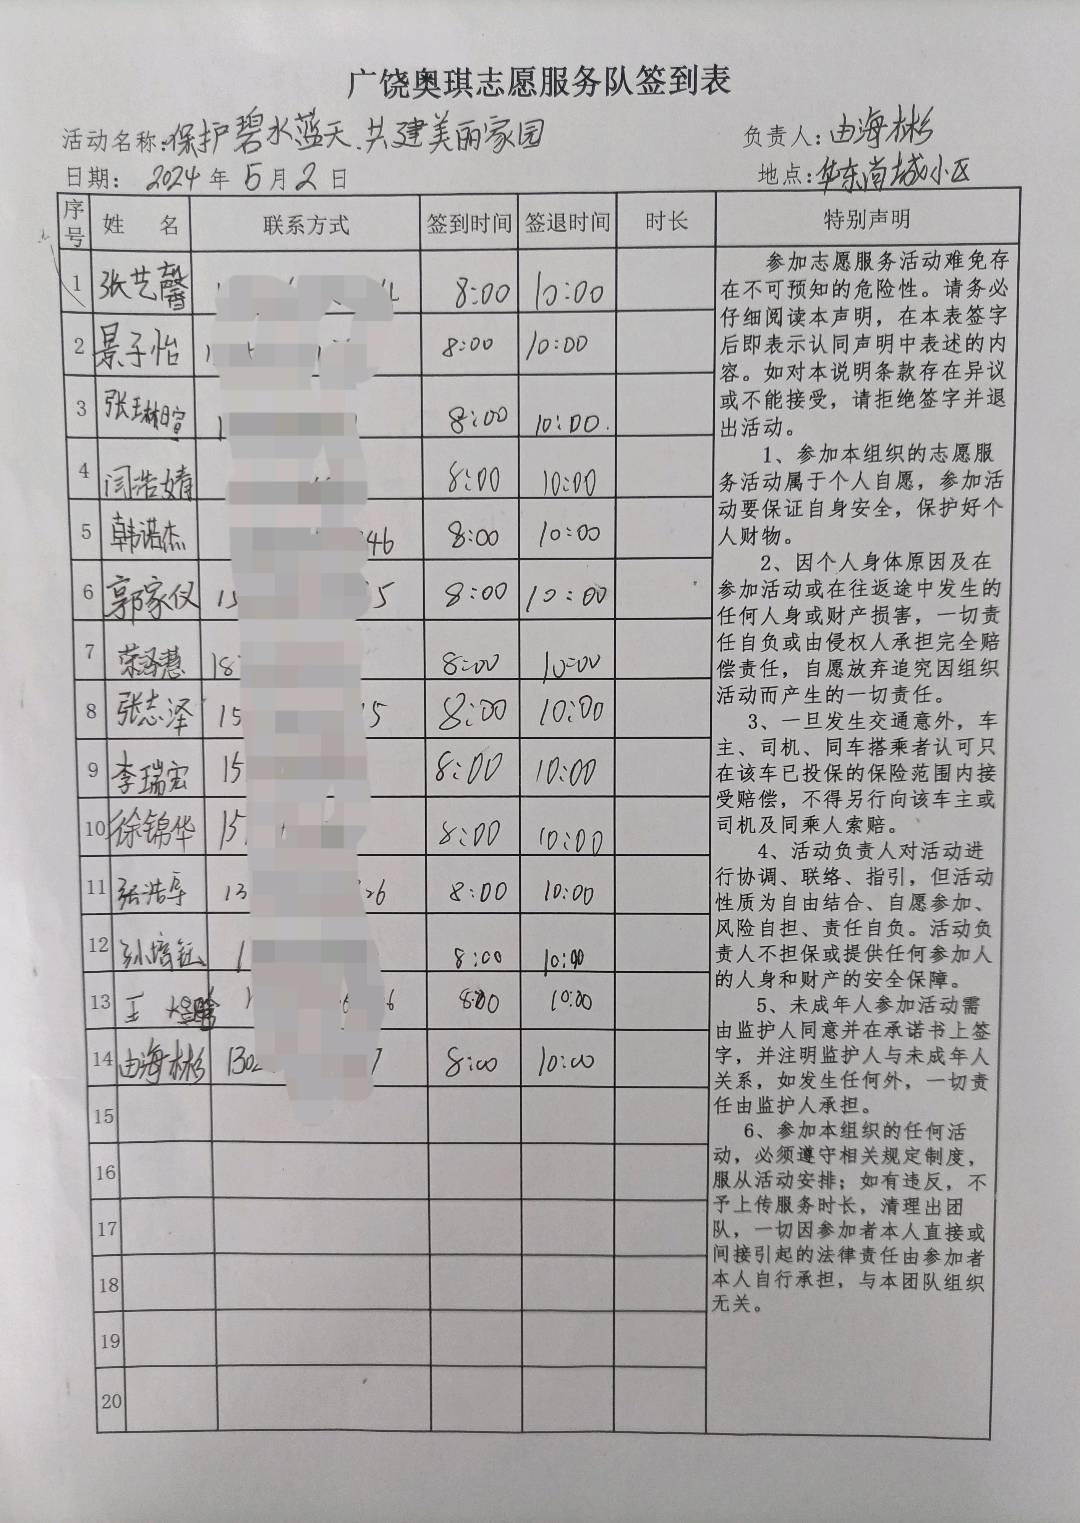 广饶奥琪志愿服务队签到表
活动名称:保护碧水蓝天.共建美丽家园 负责人:由海彬
日期: 2024年5月2日 地点:华东尚城小区
序号 姓 名 联系方式 签到时间 签退时间 时长 特别声明
1 张艺馨 8:00 10:00
2 景子怡 8:00 10:00
3 张琳暄 8:00 10:00.
4 闫浩婧 8:00 10:00
5 韩诺杰 46 8:00 10:00
6 郭家仪 15 5 8:00 10:00
7 荣泽慧 18 8:00 10:00
8 张志泽 15 5 8:00 10:00
9 李瑞宏 15 8:00 10:00
10 徐锦华 15 8:00 10:00
11 张浩 13 26 8:00 10:00
12 孙培钰 1 8:00 10:00
13 王 6 8:00 10:00
14 由海彬 130 7 8:00 10:00
15
16
17
18
19
20
参加志愿服务活动难免存
在不可预知的危险性。请务必
仔细阅读本声明，在本表签字
后即表示认同声明中表述的内
容。如对本说明条款存在异议
或不能接受，请拒绝签字并退
出活动。
1、参加本组织的志愿服
务活动属于个人自愿，参加活
动要保证自身安全，保护好个
人财物。
2、因个人身体原因及在
参加活动或在往返途中发生的
任何人身或财产损害，一切责
任自负或由侵权人承担完全赔
偿责任，自愿放弃追究因组织
活动而产生的一切责任。
3、一旦发生交通意外，车
主、司机、同车搭乘者认可只
在该车已投保的保险范围内接
受赔偿，不得另行向该车主或
司机及同乘人索赔。
4、活动负责人对活动进
行协调、联络、指引，但活动
性质为自由结合、自愿参加、
风险自担、责任自负。活动负
责人不担保或提供任何参加人
的人身和财产的安全保障。
5、未成年人参加活动需
由监护人同意并在承诺书上签
字，并注明监护人与未成年人
关系，如发生任何外，一切责
任由监护人承担。
6、参加本组织的任何活
动，必须遵守相关规定制度，
服从活动安排；如有违反，不
予上传服务时长，清理出团
队，一切因参加者本人直接或
间接引起的法律责任由参加者
本人自行承担，与本团队组织
无关。